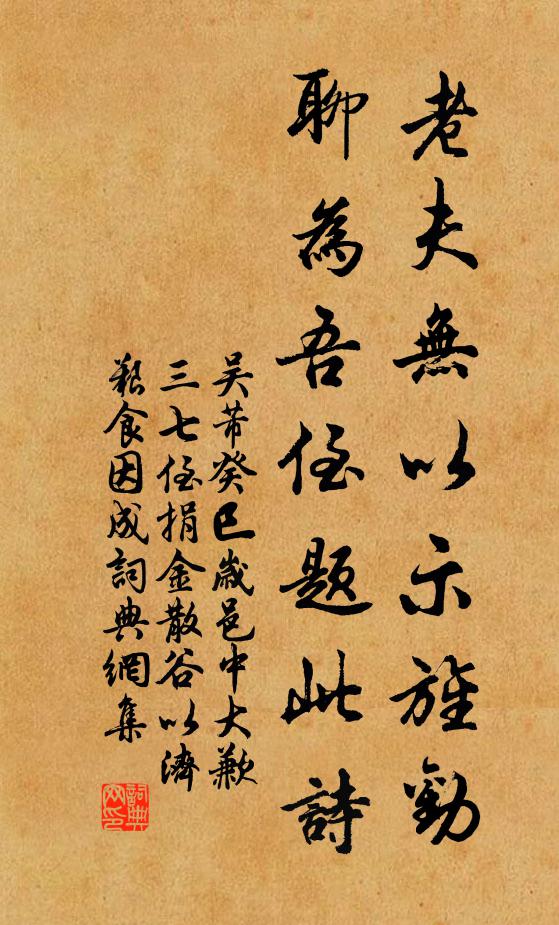 老夫無以示旌勸
聊為吾侄題此詩
吳芾癸巳歲邑中大歉
三七侄捐金散谷以濟
艱食因成詞典網集
詞典網印